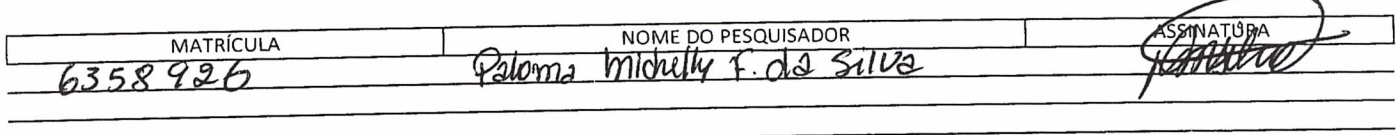 MATRÍCULA NOME DO PESQUISADOR ASSINATURA
6358926 Paloma michelly F. da Silva